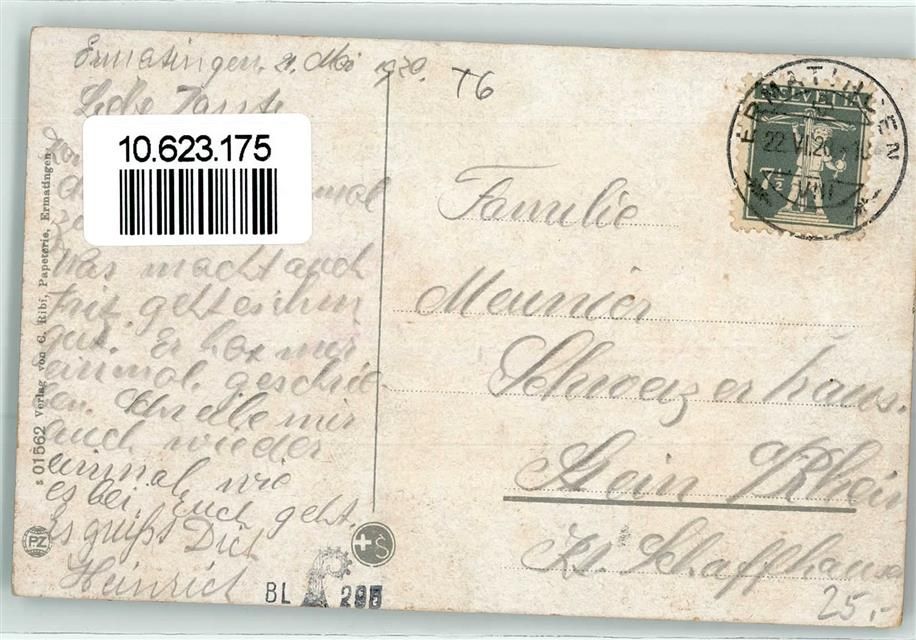 Ermatingen. 21. Mai 1920.
Liebe Tante
10.623.175
mal
Was macht auch
Fritz, geht es ihm
gut. Er hat mir
einmal geschrie
en. Schreibe mir
auch wieder
einmal, wie
es bei Euch geht.
Es grüßt Dich
Heinrich
s 01562 Verlag von C. Ribi, Papeterie, Ermatingen.
PZ
BL 295
T6
ERMATINGEN
22.VI.20
VIII
HELVETIA
7½
Familie
Meunier
Schweizerhaus.
Stein a/Rhein
Kt. Schaffhausen
25,-